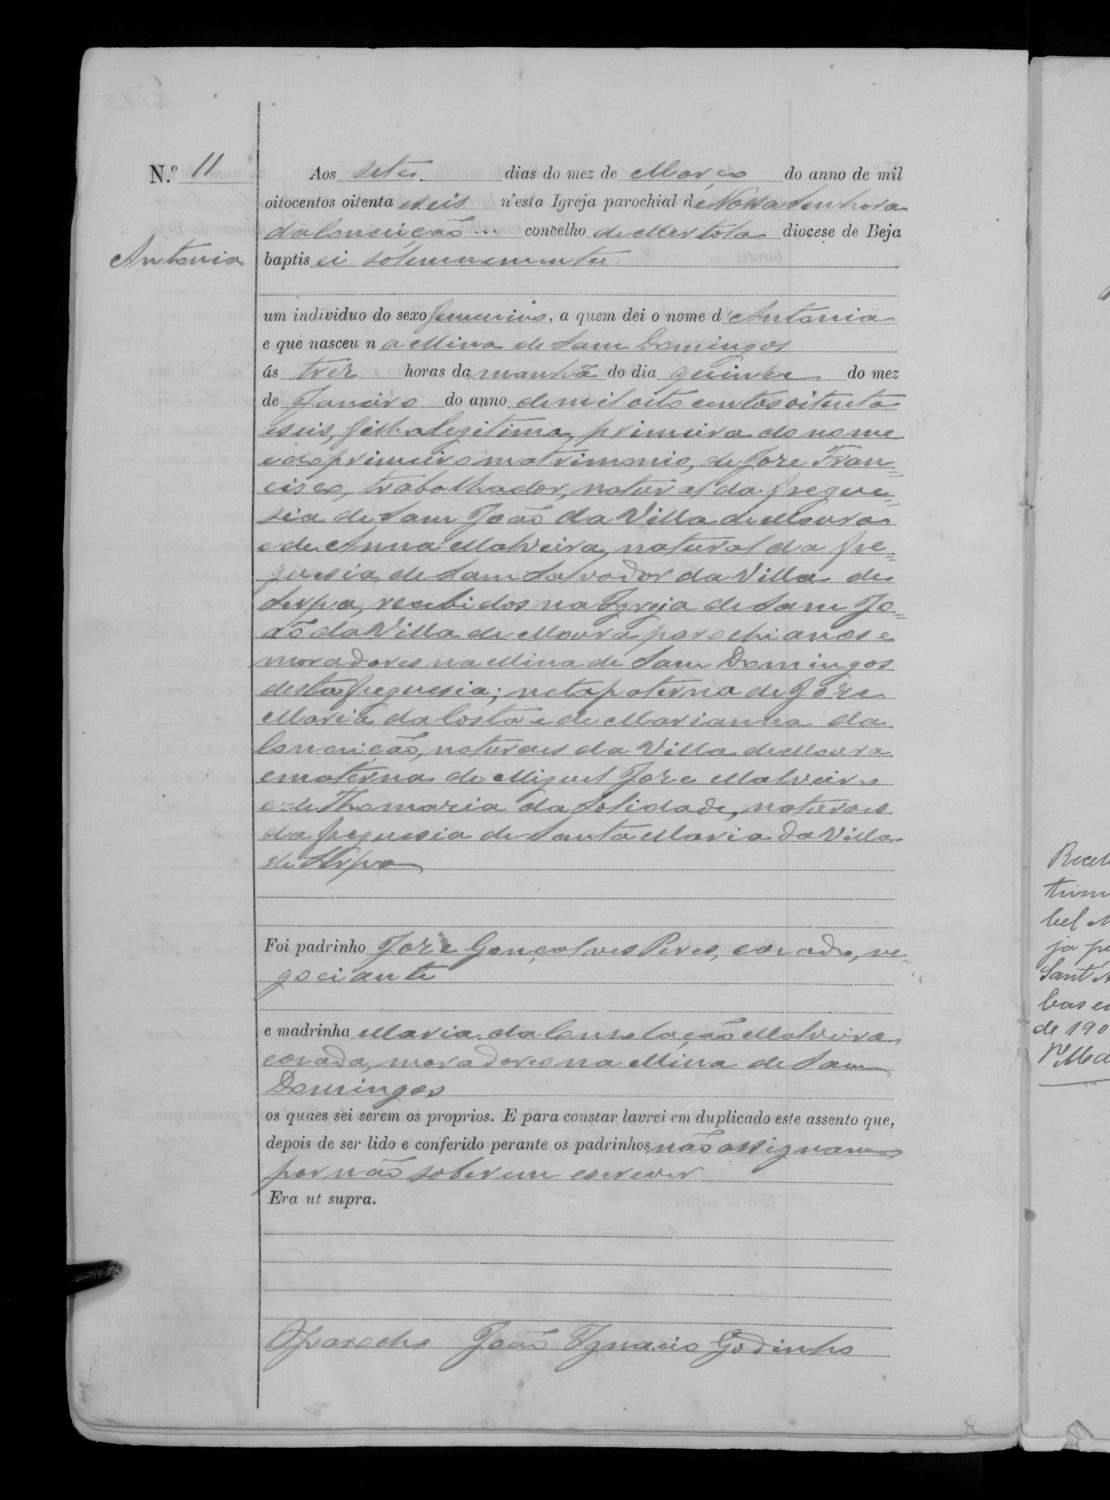 N.º 11
Antonia
Aos sete dias do mez de Março do anno de mil
oitocentos oitenta e seis n'esta Igreja parochial de Nossa Senhora
da Conceição concelho de Mertola diocese de Beja
baptisei solemnemente
um individuo do sexo femenino, a quem dei o nome d'Antonia
e que nasceu na Mina de Sam Domingos
ás trez horas da manhã do dia quinze do mez
de Janeiro do anno de mil oito centos oitenta
e seis, filha legitima, primeira do nome
e do primeiro matrimonio, de Joze Fran=
cisco, trabalhador, natural da fregue=
sia de Sam João da Villa de Moura
e de Anna Malveira, natural da fre=
guesia de Sam Salvador da Villa de
Serpa, recebidos na Igreja de Sam Jo=
ão da Villa de Moura parochianos e
moradores na Mina de Sam Domingos
desta freguesia; neta paterna de Joze
Maria da Costa e de Marianna da
Conceição, naturaes da Villa de Moura
e materna de Miguel Joze Malveiro
e de Thomazia da Solidade, naturaes
da freguesia de Santa Maria da Villa
de Serpa
Foi padrinho Joze Gonçalves Peres, cazado, ne=
gociante
e madrinha Maria da Consolação Malveira
cazada, moradores na Mina de Sam
Domingos
os quaes sei serem os proprios. E para constar lavrei em duplicado este assento que,
depois de ser lido e conferido perante os padrinhos não assignamos
por não saberem escrever
Era ut supra.
O parocho João Ignacio Godinho
Receb
trim
bel
ja pa
Sant'A
bas e
de 190